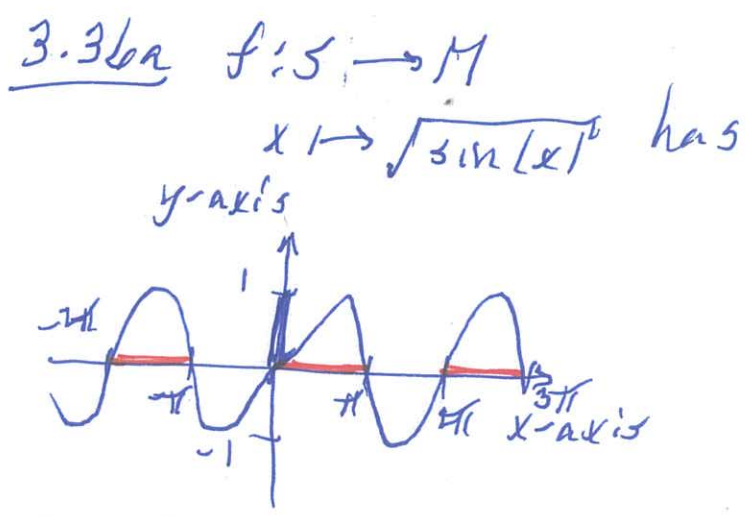 3.36a f: S → M
x ↦ √sin(x) has
y-axis
1
-2π
-π
π
2π
3π
x-axis
-1